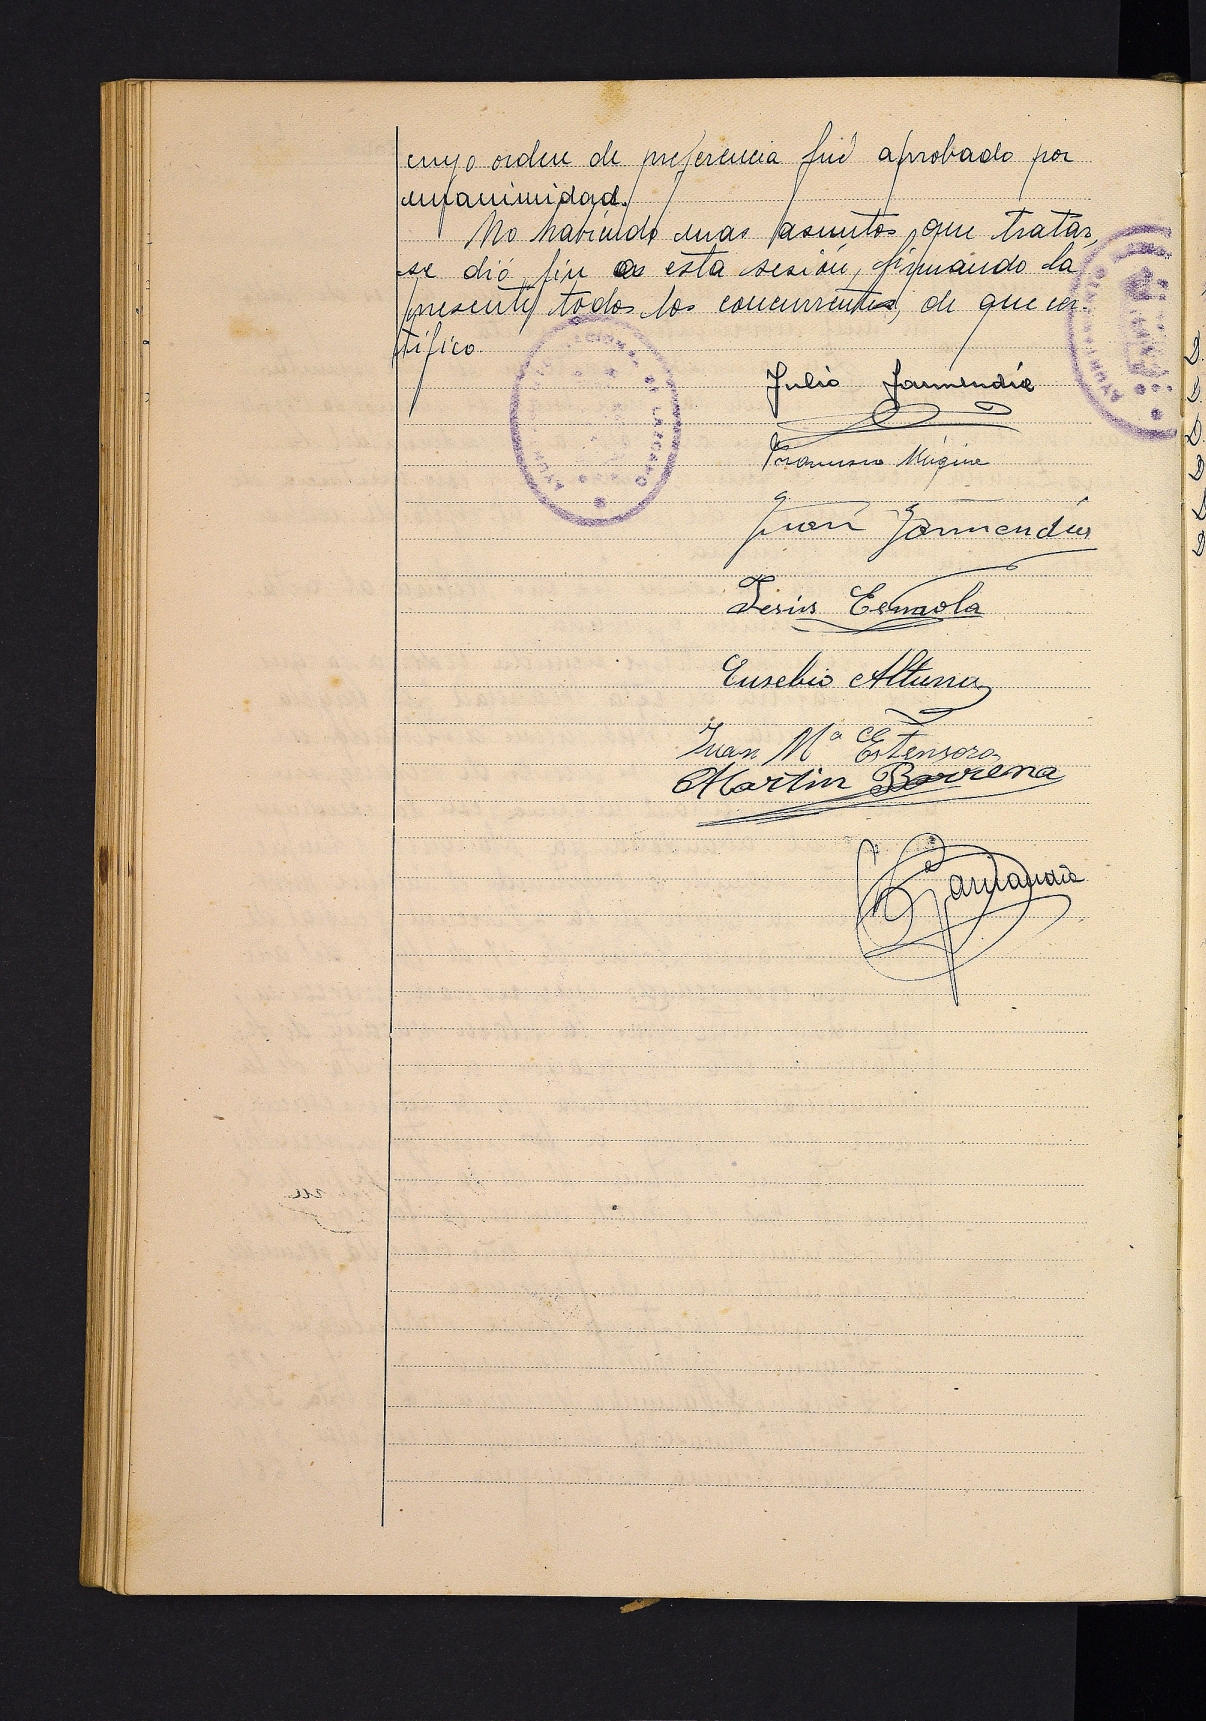 cuyo orden de preferencia fué aprobado por
unanimidad.
No habiendo mas asuntos que tratar,
se dió fin a esta sesión, firmando la
presente todos los concurrentes, de que cer-
tifico.
Julio Garmendia
Francisco Múgica
Juan Garmendia
Jesús
Eusebio Altuna
Juan Mª Estensoro
Martin Barrena
AYUN DE LAZCANO
AYUNTAMIENTO
D.
D.
D.
D
D
D